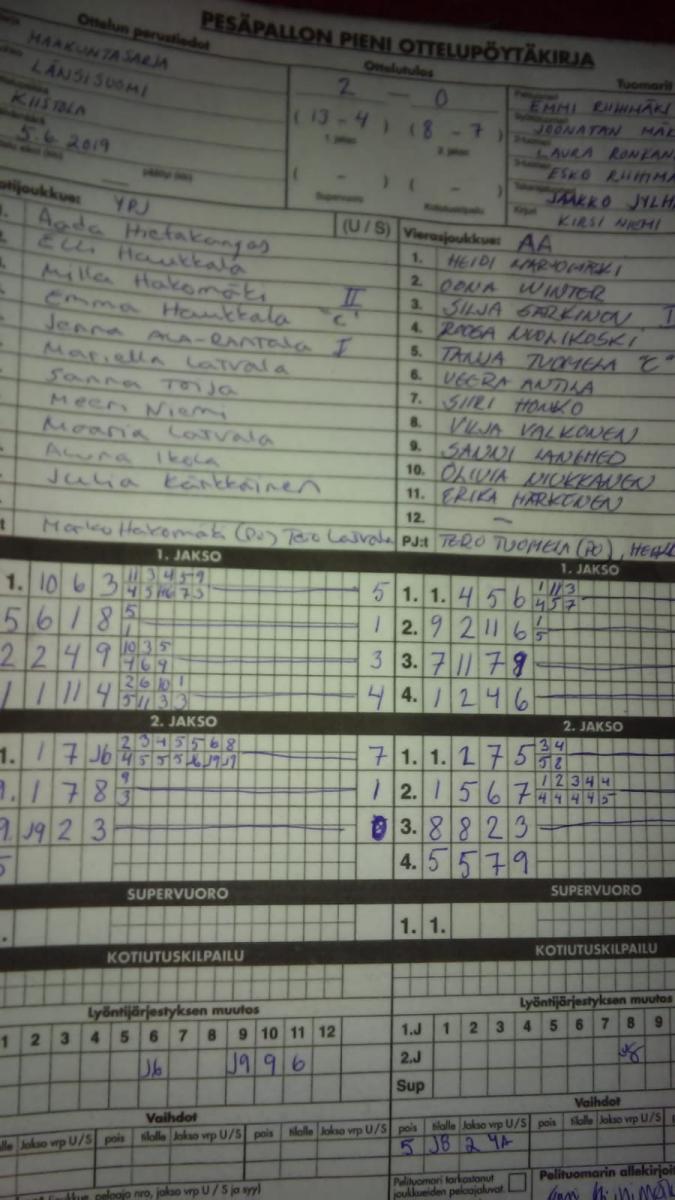 PESÄPALLON PIENI OTTELUPÖYTÄKIRJA
Ottelun perustiedot
Ottelutulos
Tuomarit
MAAKUNTASARJA
LÄNSISUOMI
KIISTOLA
5.6.2019
2 – 0
(13 – 4) (8 – 7)
1. jakso 2. jakso
( – ) ( – )
Supervuoro Kotiutuskilpailu
EMMI RIIHIMÄKI
JOONATAN
LAURA
ESKO
JAAKKO
KIRSI NIEMI
YPJ
(U / S)
Aada Hietakangas
Elli Haukkala
Milla Hakomäki II
Emma Haukkala "C"
Jenna ALA-RANTALA I
Mariella Latvala
Sanna Toija
Meeri Niemi
Maaria Latvala
Ikola
Julia Kärkkäinen
Marko Hakomäki (PJ) Tero Latvala
Vierasjoukkue: AA
1. HEIDI
2. OONA WINTER
3. SILJA SARKINEN
4. ROOSA NUOLIKOSKI
5. TANJA TUOMELA "C"
6. VEERA ANTILA
7. SIIRI HONKO
8. VILJA VALKONEN
9. SANNI LANEHED
10. OLIVIA NIUKKANEN
11. ERIKA HARKONEN
12. –
PJ:t TERO TUOMELA (PJ),
1. JAKSO
1. 10 6 3 11 3 4 5 9 5
4 5 16 7 3
5 6 1 8 5 1
1
2 2 4 9 10 3 5 3
4 6 9
1 1 11 4 2 6 10 1 4
5 11 3 3
1. JAKSO
1. 1. 4 5 6 1 11 3
4 5 7
2. 9 2 11 6 1
5
3. 7 11 7 9
4. 1 2 4 6
2. JAKSO
1. 1 7 J6 2 3 4 5 5 6 8 7
4 5 5 5 J6 J9 J9
9. 1 7 8 9 1
3
9. J9 2 3 0
5
2. JAKSO
1. 1. 2 7 5 3 4
5 8
2. 1 5 6 7 1 2 3 4 4
4 4 4 4 5
3. 8 8 2 3
4. 5 5 7 9
SUPERVUORO
SUPERVUORO
1. 1.
KOTIUTUSKILPAILU
KOTIUTUSKILPAILU
Lyöntijärjestyksen muutos
1 2 3 4 5 6 7 8 9 10 11 12
J6 J9 9 6
Lyöntijärjestyksen muutos
1.J 1 2 3 4 5 6 7 8 9
2.J J8
Sup
Vaihdot
tilalle Jakso vrp U/S pois tilalle Jakso vrp U/S pois tilalle Jakso vrp U/S
Vaihdot
pois tilalle Jakso vrp U/S pois tilalle Jakso vrp U/S
5 J8 2 4A
Pelituomari tarkastanut
joukkueiden pelaajaluvat.